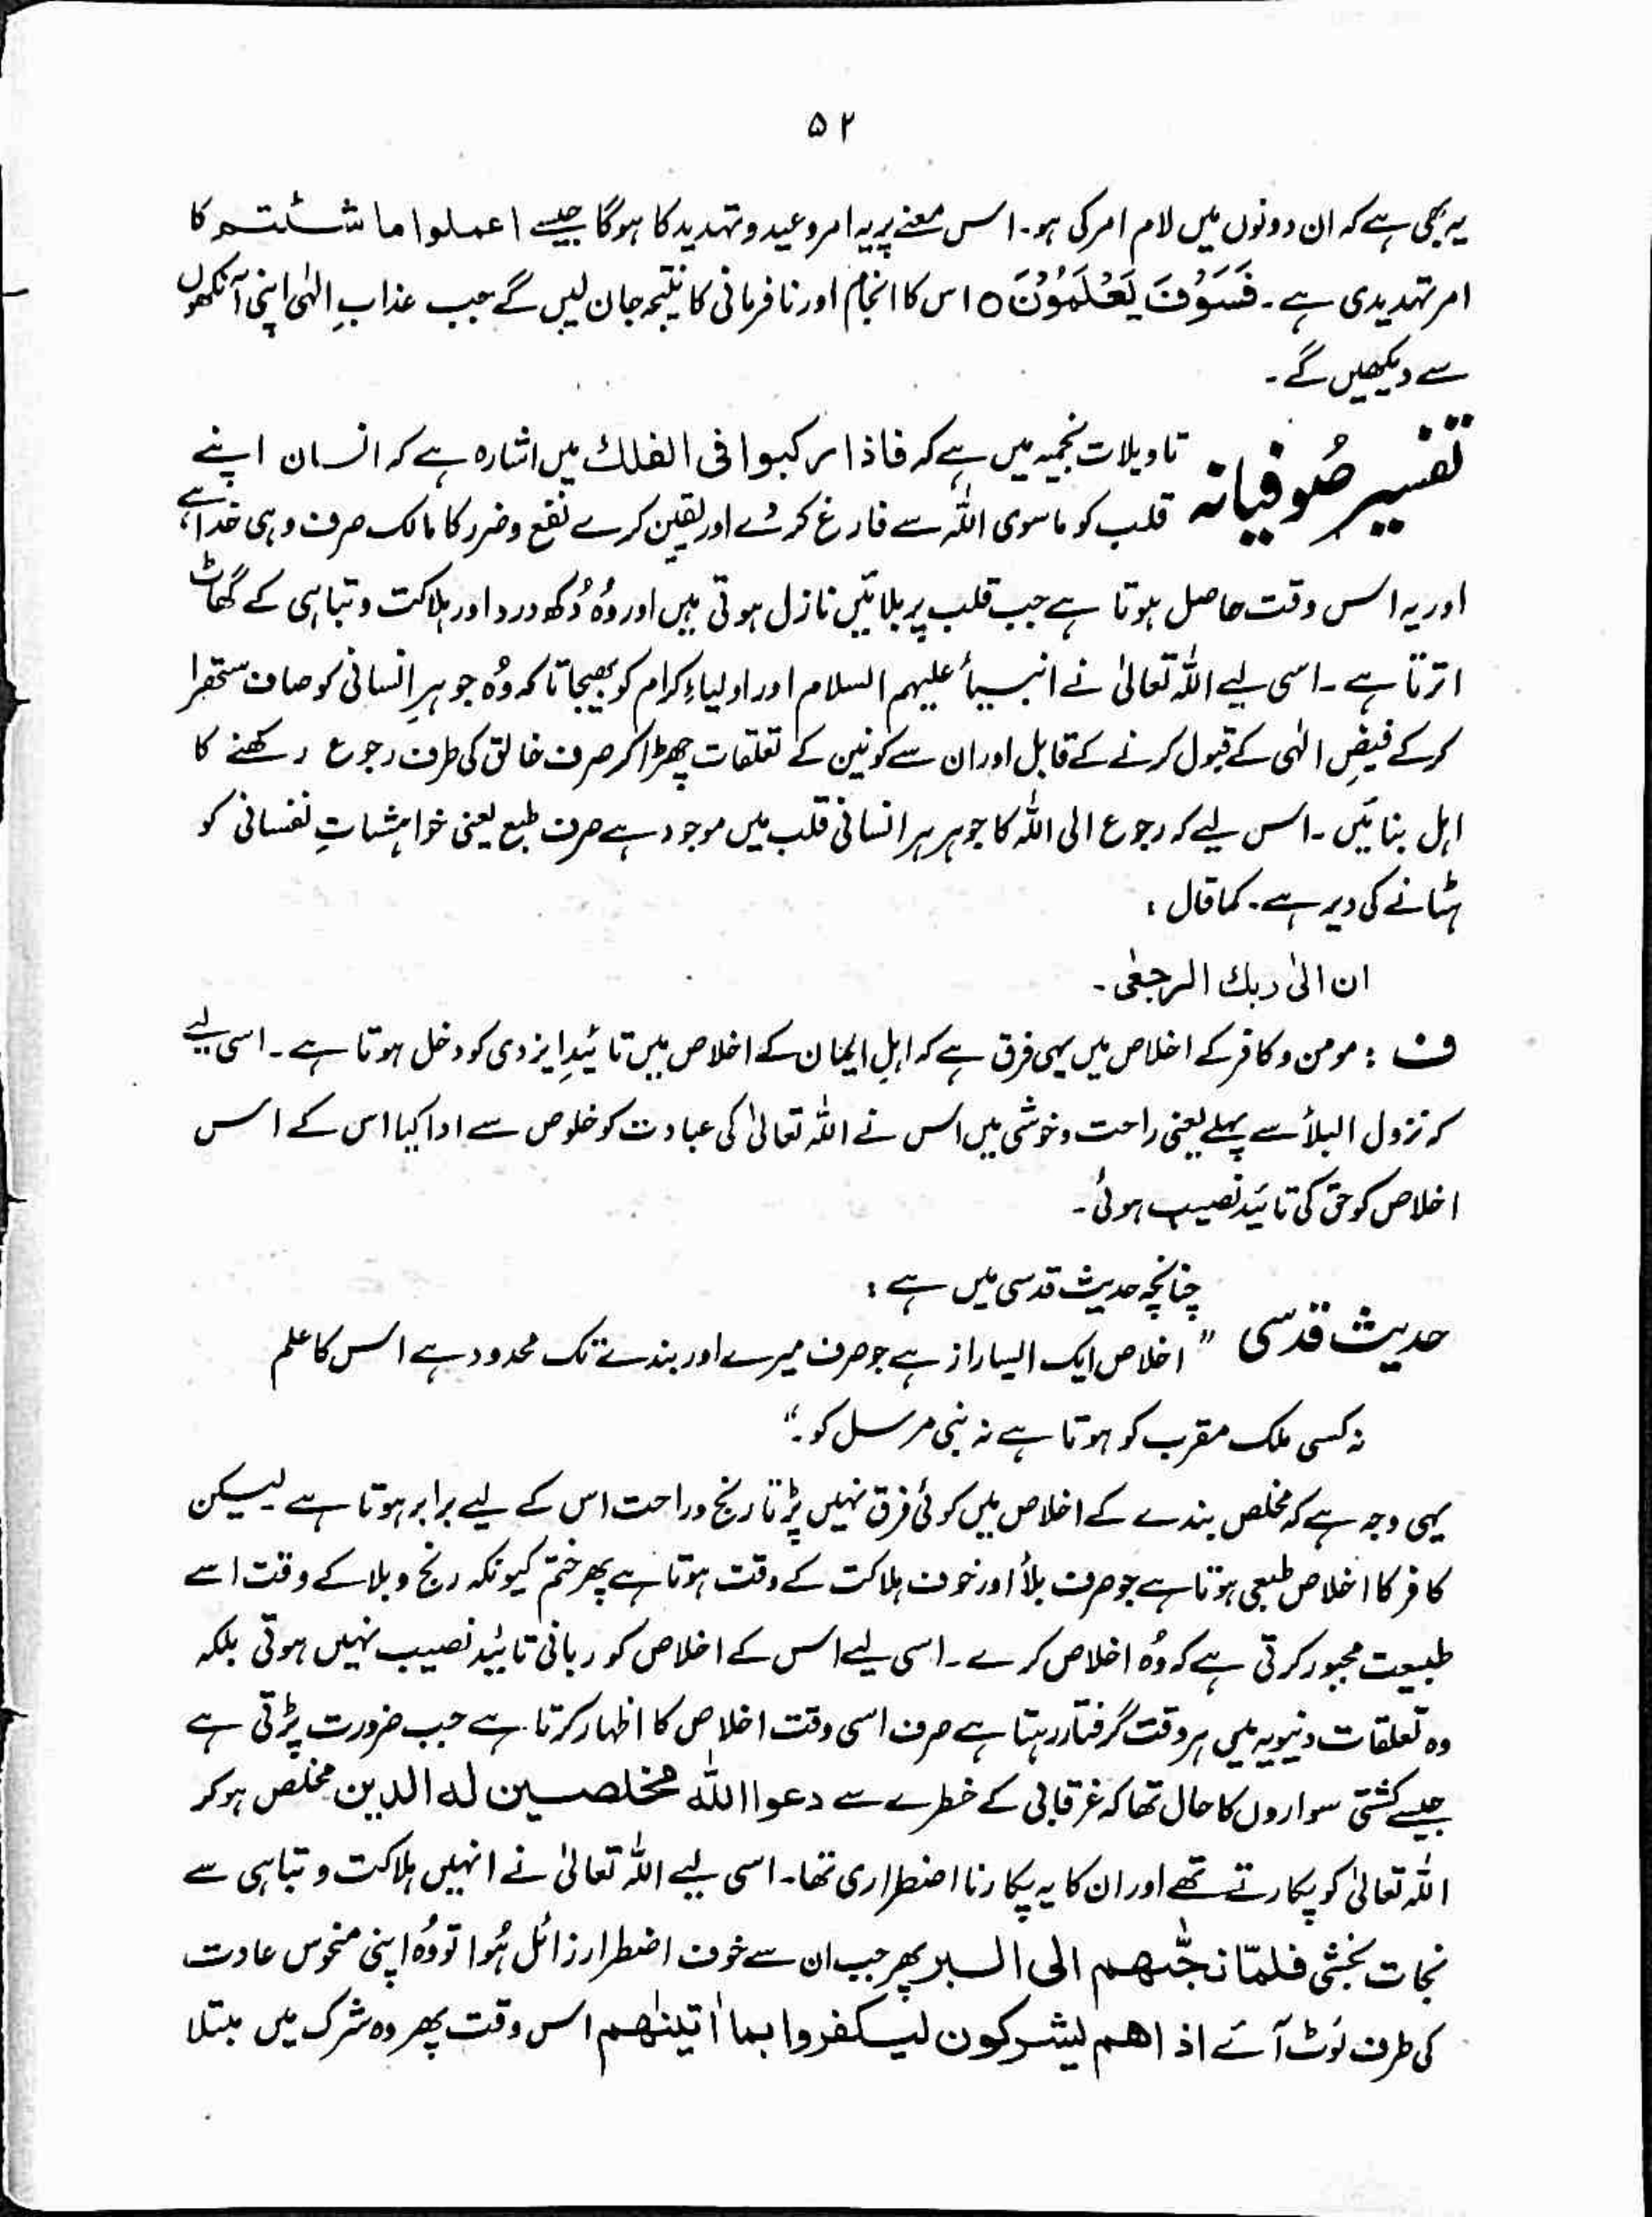 ۵۲
یہ بھی ہے کہ ان دونوں میں لام امر کی ہو۔ اس معنے پر یہ امر وعید و تہدید کا ہوگا جیسے اعملوا ما شئتم کا
امر تہدیدی ہے۔ فَسَوْفَ یَعْلَمُوْنَ ○ اس کا انجام اور نافرمانی کا نتیجہ جان لیں گے جب عذابِ الٰہی اپنی آنکھوں
سے دیکھیں گے۔
تفسیر صُوفیانہ
تاویلات نجمیہ میں ہے کہ فاذا رکبوا فی الفلک میں اشارہ ہے کہ انسان اپنے
قلب کو ماسوی اللہ سے فارغ کر دے اور یقین کرے نفع و ضرر کا مالک صرف وہی خدا ہے،
اور یہ اس وقت حاصل ہوتا ہے جب قلب پر بلائیں نازل ہوتی ہیں اور وُہ دُکھ درد اور ہلاکت و تباہی کے گھاٹ
اترتا ہے۔ اسی لیے اللہ تعالیٰ نے انبیأ علیہم السلام اور اولیاءِ کرام کو بھیجا تاکہ وُہ جوہرِ انسانی کو صاف ستھرا
کرکے فیضِ الٰہی کے قبول کرنے کے قابل اور ان سے کونین کے تعلقات چھڑا کر صرف خالق کی طرف رجوع رکھنے کا
اہل بنائیں۔ اس لیے کہ رجوع الی اللہ کا جوہر ہر انسانی قلب میں موجود ہے صرف طبع یعنی خواہشاتِ نفسانی کو
ہٹانے کی دیر ہے۔ کما قال :
ان الیٰ ربك الرجعٰی۔
ف : مومن و کافر کے اخلاص میں یہی فرق ہے کہ اہلِ ایمان کے اخلاص میں تائیدِ ایزدی کو دخل ہوتا ہے۔ اسی لیے
کہ نزول البلأ سے پہلے یعنی راحت و خوشی میں اس نے اللہ تعالیٰ کی عبادت کو خلوص سے ادا کیا اس کے اس
اخلاص کو حق کی تائید نصیب ہوئی۔
چنانچہ حدیث قدسی میں ہے :
حدیث قدسی
" اخلاص ایک ایسا راز ہے جو صرف میرے اور بندے تک محدود ہے اس کا علم
نہ کسی ملک مقرب کو ہوتا ہے نہ نبی مرسل کو۔"
یہی وجہ ہے کہ مخلص بندے کے اخلاص میں کوئی فرق نہیں پڑتا رنج و راحت اس کے لیے برابر ہوتا ہے لیکن
کافر کا اخلاص طبعی ہوتا ہے جو صرف بلأ اور خوف ہلاکت کے وقت ہوتا ہے پھر ختم کیونکہ رنج و بلا کے وقت اسے
طبیعت مجبور کرتی ہے کہ وُہ اخلاص کرے۔ اسی لیے اس کے اخلاص کو ربانی تائید نصیب نہیں ہوتی بلکہ
وہ تعلقات دنیویہ میں ہر وقت گرفتار رہتا ہے صرف اسی وقت اخلاص کا اظہار کرتا ہے جب ضرورت پڑتی ہے
جیسے کشتی سواروں کا حال تھا کہ غرقابی کے خطرے سے دعوا اللہ مخلصین لہ الدین مخلص ہو کر
اللہ تعالیٰ کو پکارتے تھے اور ان کا یہ پکارنا اضطراری تھا۔ اسی لیے اللہ تعالیٰ نے انہیں ہلاکت و تباہی سے
نجات بخشی فلمّا نجّٰھم الی البر پھر جب ان سے خوف اضطرار زائل ہُوا تو وُہ اپنی منحوس عادت
کی طرف لوٹ آئے اذا ھم یشرکون لیکفروا بما اٰتینٰھم اس وقت پھر وہ شرک میں مبتلا